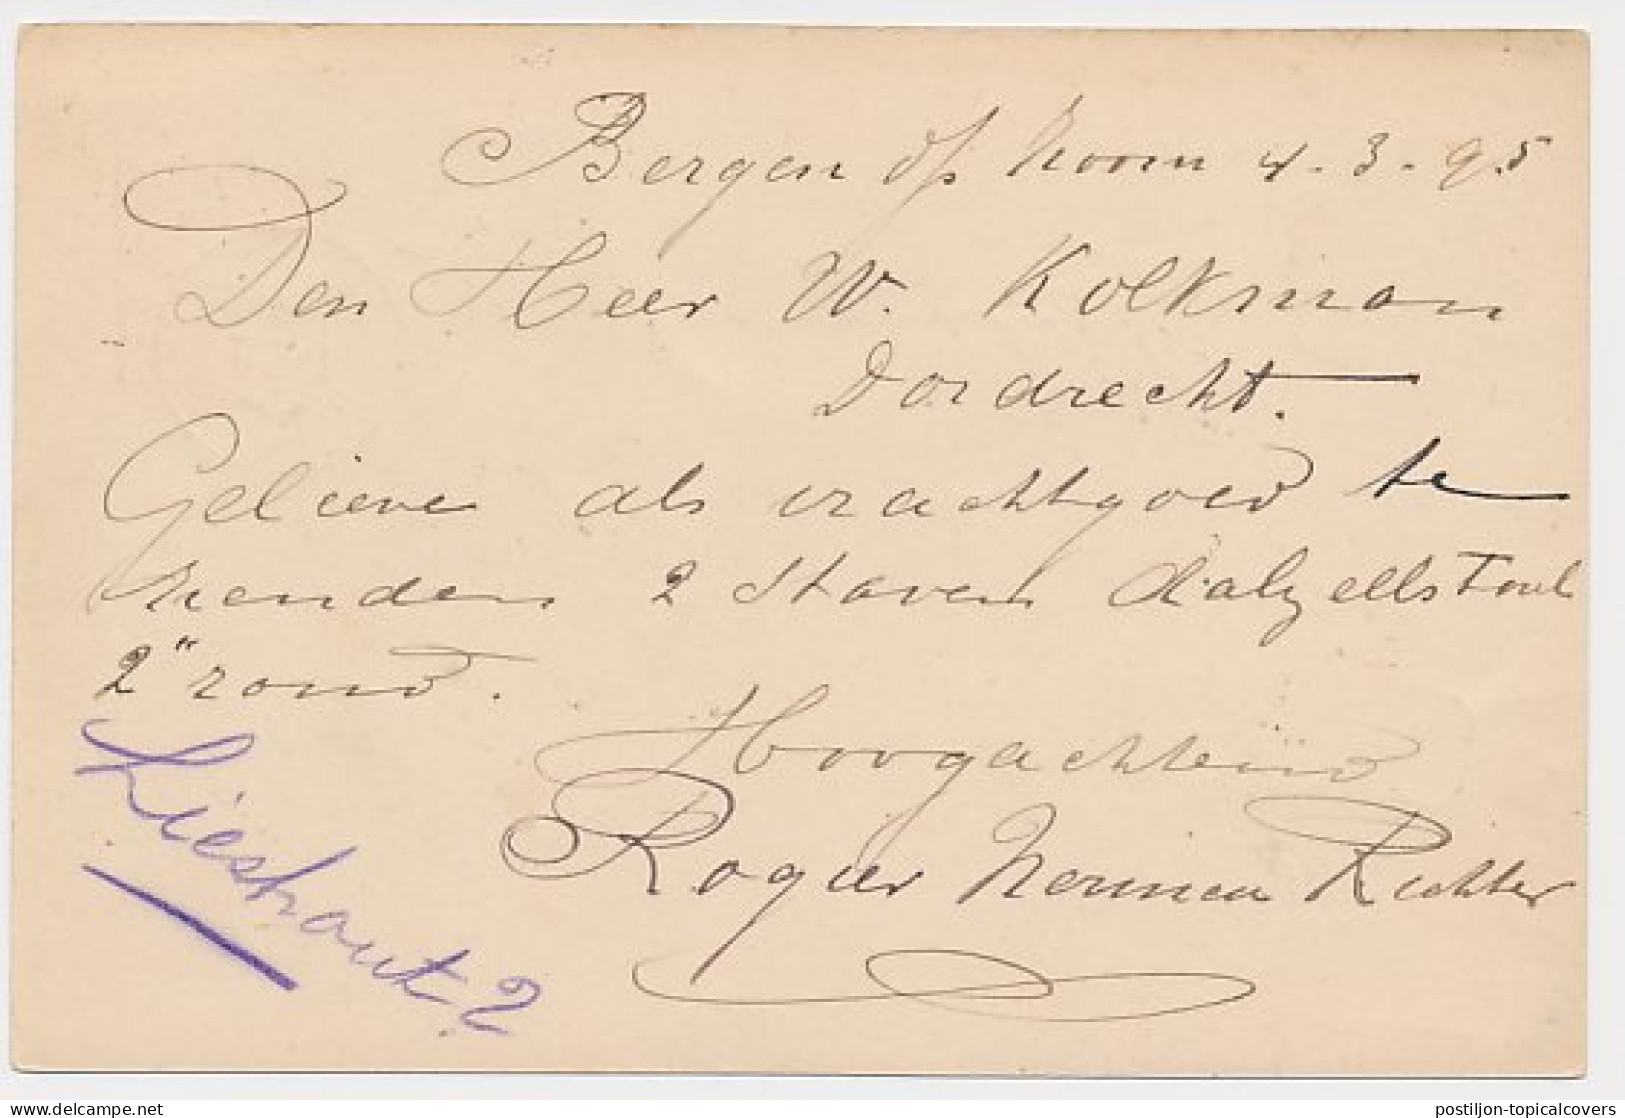 Bergen op Zoom 4-3-95
Den Heer W. Kolkman
Dordrecht.
Gelieve als vrachtgoed te
zenden 2 staven dalzellstaal
2" rond.
Hoogachtend
Rogier Nerincx Richter
Lieshout?
postiljon-topicalcovers
www.delcampe.net